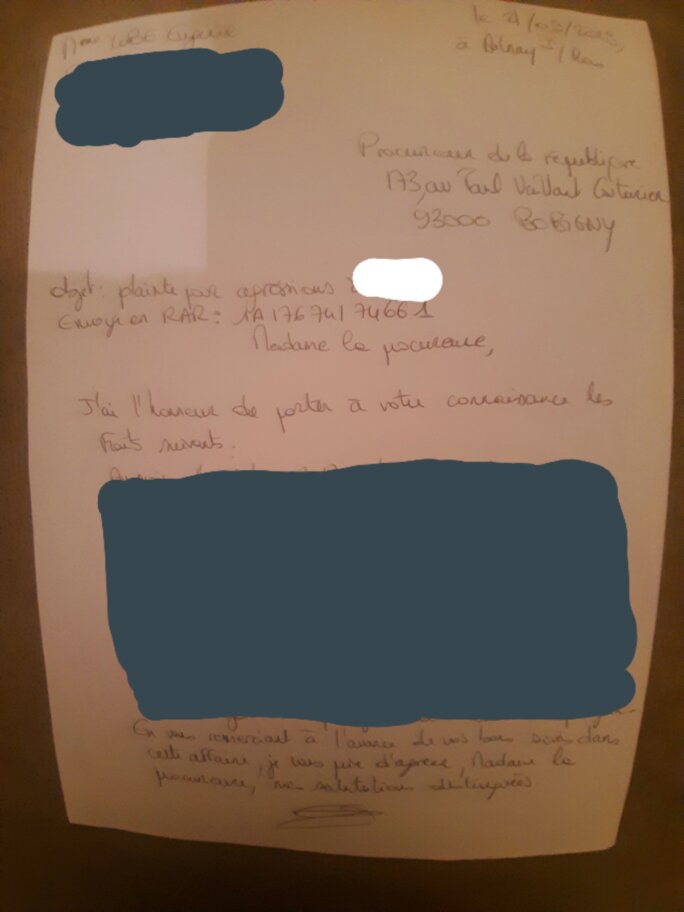 Mme
le
à Aulnay s/ Bois
Procureur de la république
173, av Paul Vaillant Couturier
93000 BOBIGNY
objet: plainte pour agressions
Envoyé en RAR: 1A 176 741 7466 1
Madame la procureure,
J'ai l'honneur de porter à votre connaissance les
Faits suivants.
En vous remerciant à l'avance de vos bons soins dans
cette affaire, je vous prie d'agréer, Madame la
procureure, mes salutations distinguées